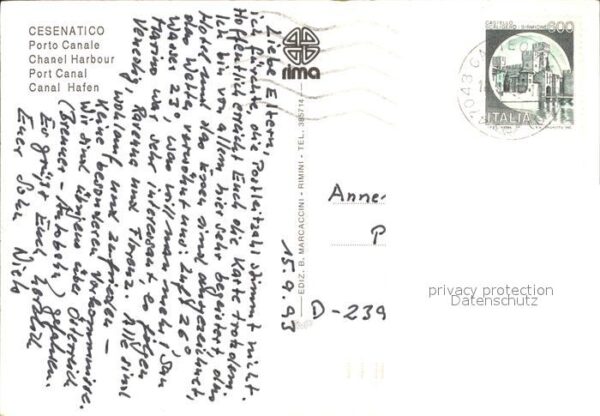 CESENATICO
Porto Canale
Chanel Harbour
Port Canal
Canal Hafen
rima
EDIZ. B. MARCACCINI - RIMINI - TEL. 385714
Liebe Eltern,
ich fürchte die Postleitzahl stimmt nicht.
Hoffentlich erreicht Euch die Karte trotzdem
Ich bin von allem hier sehr begeistert das
Hotel und das Essen sind ausgezeichnet,
das Wetter verwöhnt uns Luft 26°
Wasser 23°, was will man mehr, San
Marino war sehr interessant, es folgen
Venedig, Ravenna und Florenz. Alle sind
wohlauf und zufrieden -
Keine besonderen Vorkommnisse.
Wir sind übrigens über Österreich
(Brenner - Autobahn) gefahren.
Es grüßt Euch herzlich
Euer Sohn
15.9.93
600
ITALIA
Anne
P
D-239
privacy protection
Datenschutz